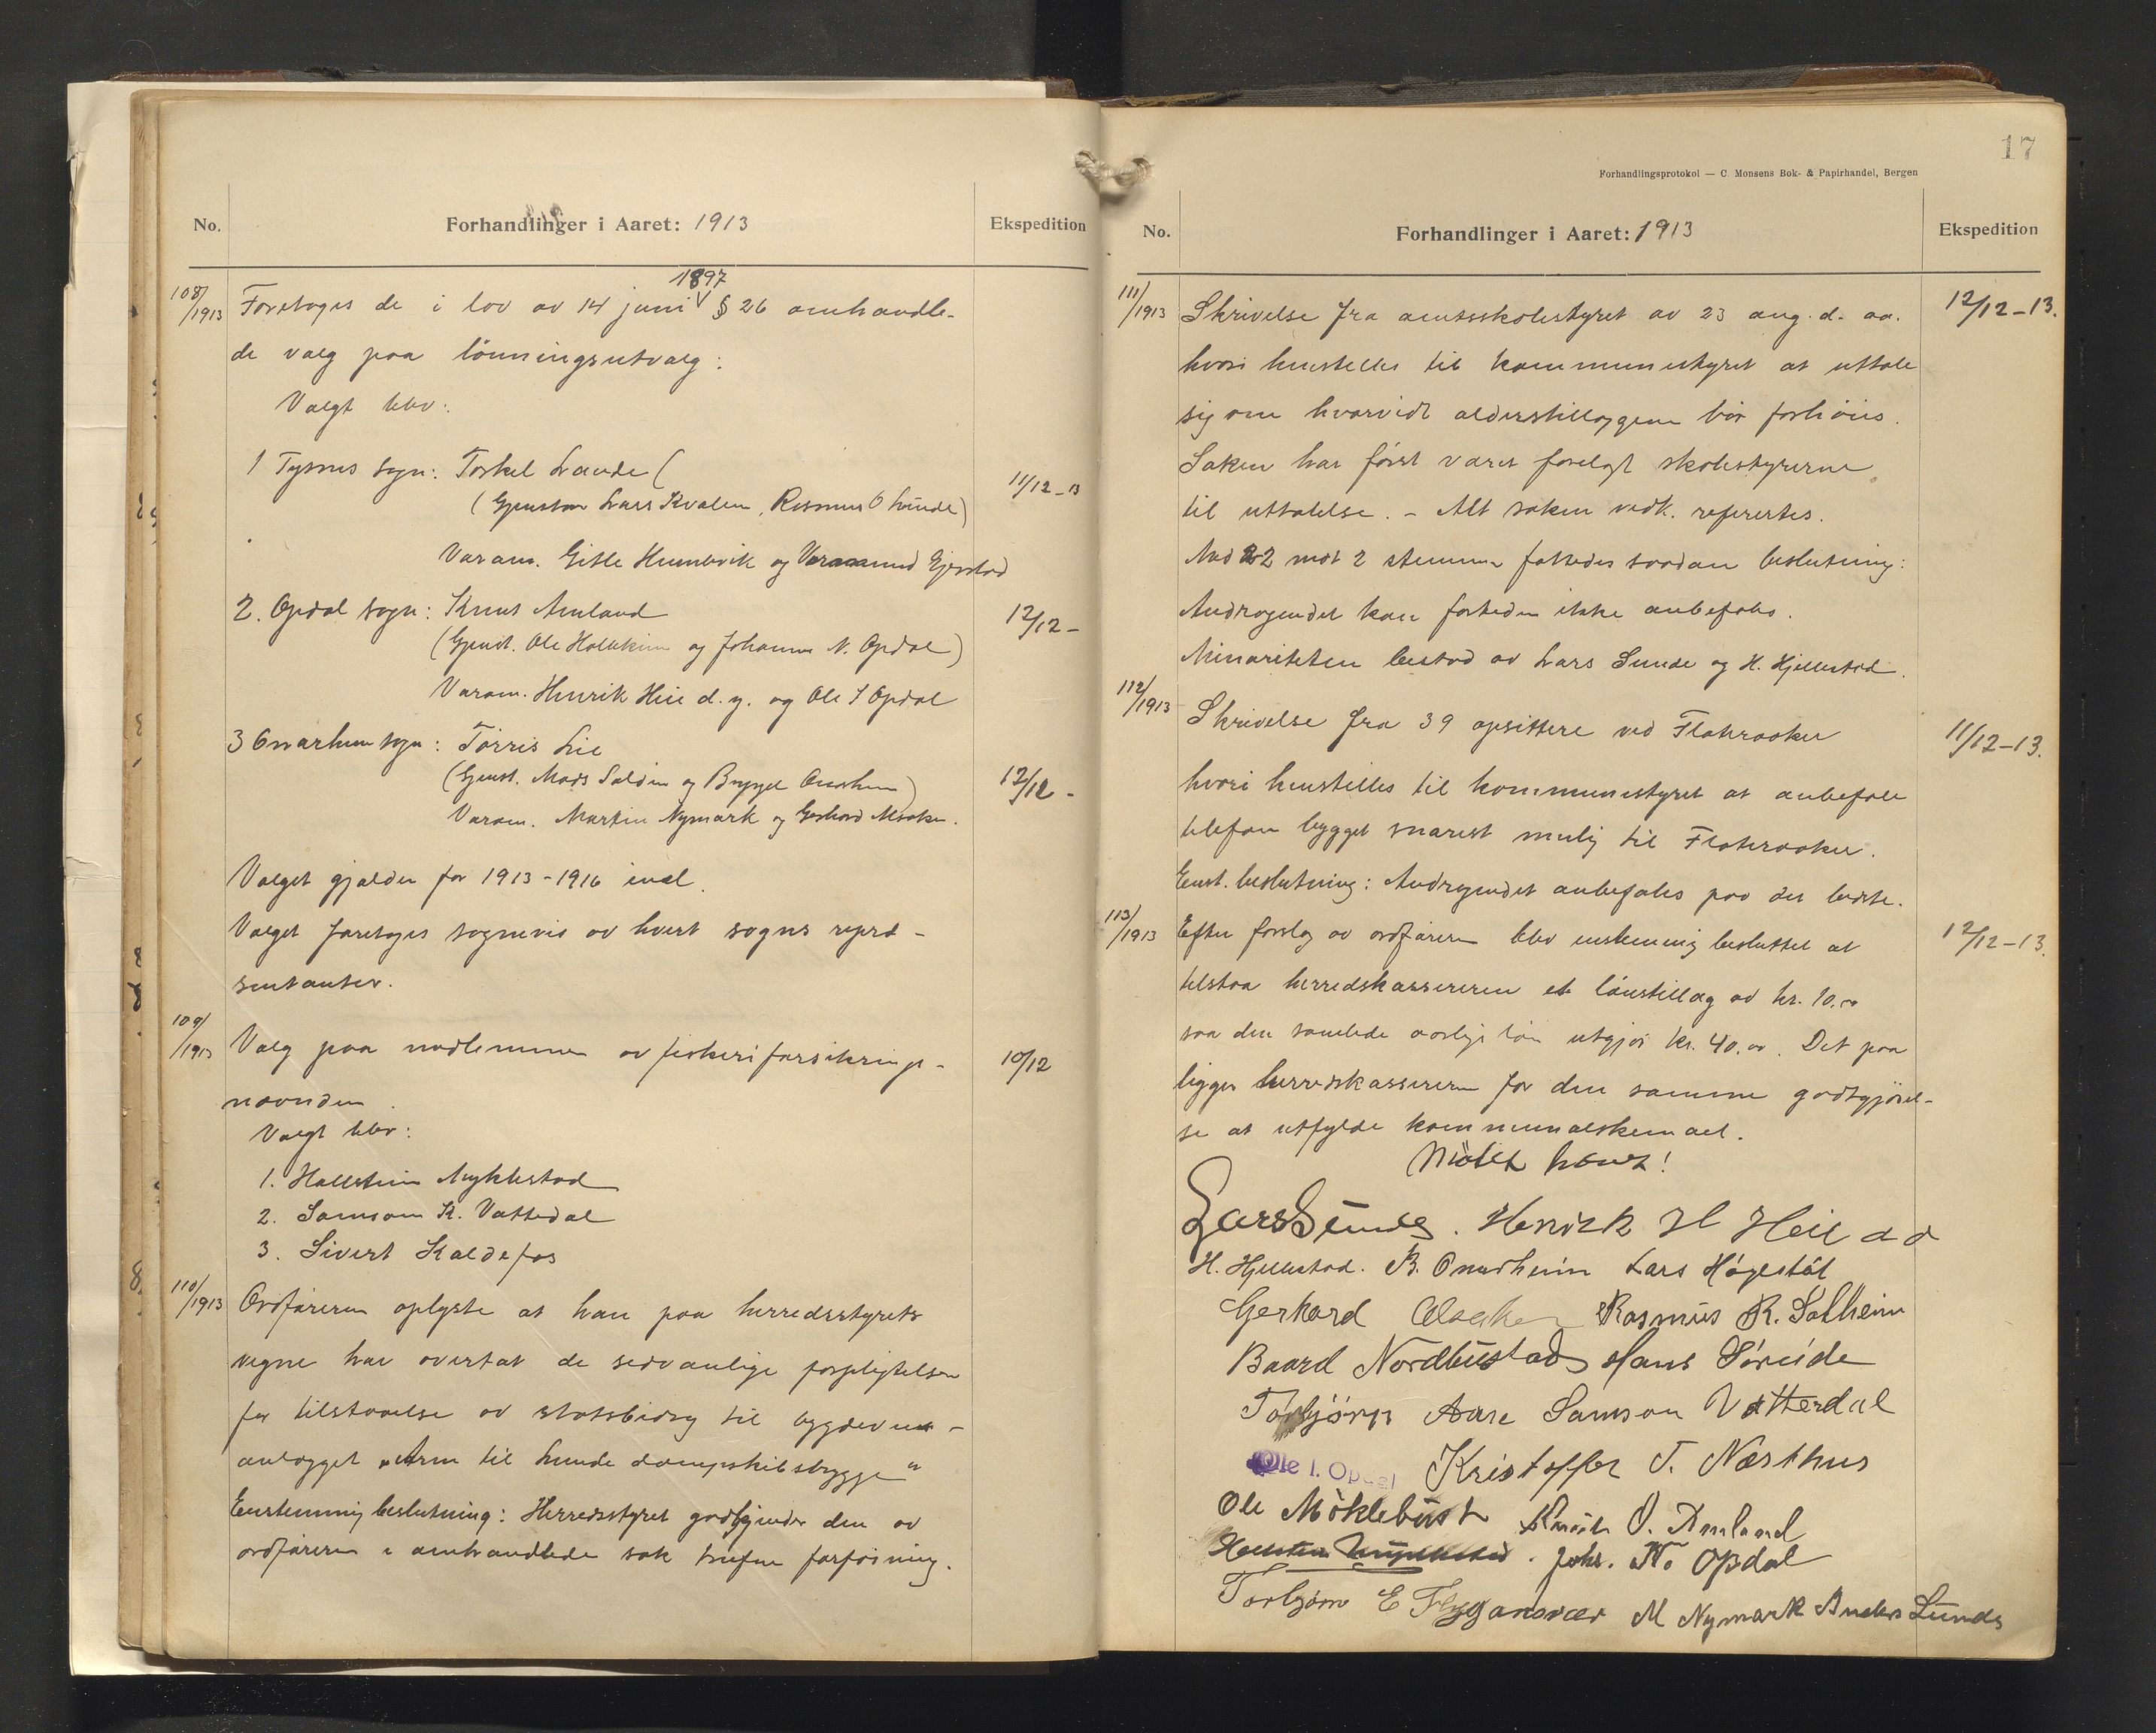 No.
Forhandlinger i Aaret: 1913
Ekspedition
108/1913
1897
Foretoges de i lov av 14 juni § 26 omhandle-
de valg paa lönningsutvalg:
Valgt blev:
1 Tysnes sogn: Torkel Lande (
(Gjenstaar Lars Kvalem, Rasmus O Lunde)
11/12-13
Varam. Gitle Humlevik og Gjerstad
2. Opdal sogn: Knut Amland
12/12-
(Gjenst. Ole Hallekim og Johannes N. Opdal)
Varam. Henrik Heie d. y. og Ole I Opdal
3 Onarheim sogn: Törris Lie
(Gjenst. Mads Saldin og Onarheim)
12/12-
Varam. Martin Nymark og Gerhard Alsaker.
Valget gjælder for 1913-1916 incl.
Valget foretoges sognevis av hvert sogns repræ-
sentanter.
109/1913
Valg paa medlemmer av fiskeriforsikrings-
10/12
nævnden.
Valgt blev:
1. Hallstein Myklestad
2. Samson K. Vattedal
3. Sivert Kaldefos
110/1913
Ordföreren oplyste at han paa herredsstyrets
vegne har overtat de sedvanlige forpligtelser
for tilstaaelse av statsbidrag til bygdeveis-
anlægget „Arm til Lunde dampskibsbrygge“
Enstemmig beslutning: Herredsstyret godkjender den av
ordföreren i omhandlede sak trufne forföining.
17
Forhandlingsprotokol — C. Monsens Bok- & Papirhandel, Bergen
No.
Forhandlinger i Aaret: 1913
Ekspedition
111/1913
Skrivelse fra amtsskolestyret av 23 aug. d. aa.
12/12-13.
hvori henstilles til kommunestyret at uttale
sig om hvorvidt alderstillæggene bör forhöies.
Saken har först været forelagt skolestyrerne
til uttalelse. - Alt saken vedk. refertes.
Med 22 mot 2 stemmer fattedes saadan beslutning:
Andragendet kan fortiden ikke anbefales.
Minoriteten bestod av Lars Lunde og H. Hjellestad.
112/1913
Skrivelse fra 39 opsittere ved Flateraaker
11/12-13.
hvori henstilles til kommunestyret at anbefale
telefon bygget snarest mulig til Flateraaker.
Enst. beslutning: Andragendet anbefales paa det bedste.
113/1913
Efter forslag av ordföreren blev enstemmig besluttet at
12/12-13.
tilstaa herredskassereren et lönstillæg av kr. 10.00
saa den samlede aarlige lön utgjör kr. 40.00. Det paa
ligger herredskassereren for den samme godtgjörel-
se at utfylde kommunalskemaet.
Mötet hævet!
Lars Lunde. Henrik H Heie d d
H. Hjellestad. B. Onarheim Lars Högestöl
Gerhard Alsaker Rasmus R. Solheim
Baard Nordbustad Hans Söreide
Torbjörn Aare Samson Vatterdal
Ole I. Opdal Kristoffer T. Næsthus
Ole Möklebust Knut O. Amland
Hallstein Myklestad. Johs. N. Opdal
Torbjörn E Flygansvær M Nymark Anders Lunde